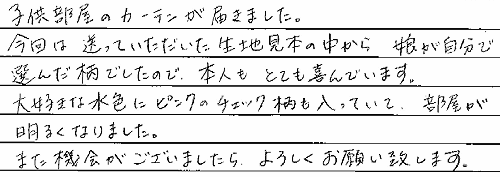 子供部屋のカーテンが届きました。
今回は送っていただいた生地見本の中から娘が自分で
選んだ柄でしたので、本人もとても喜んでいます。
大好きな水色にピンクのチェック柄も入っていて、部屋が
明るくなりました。
また機会がございましたら、よろしくお願い致します。